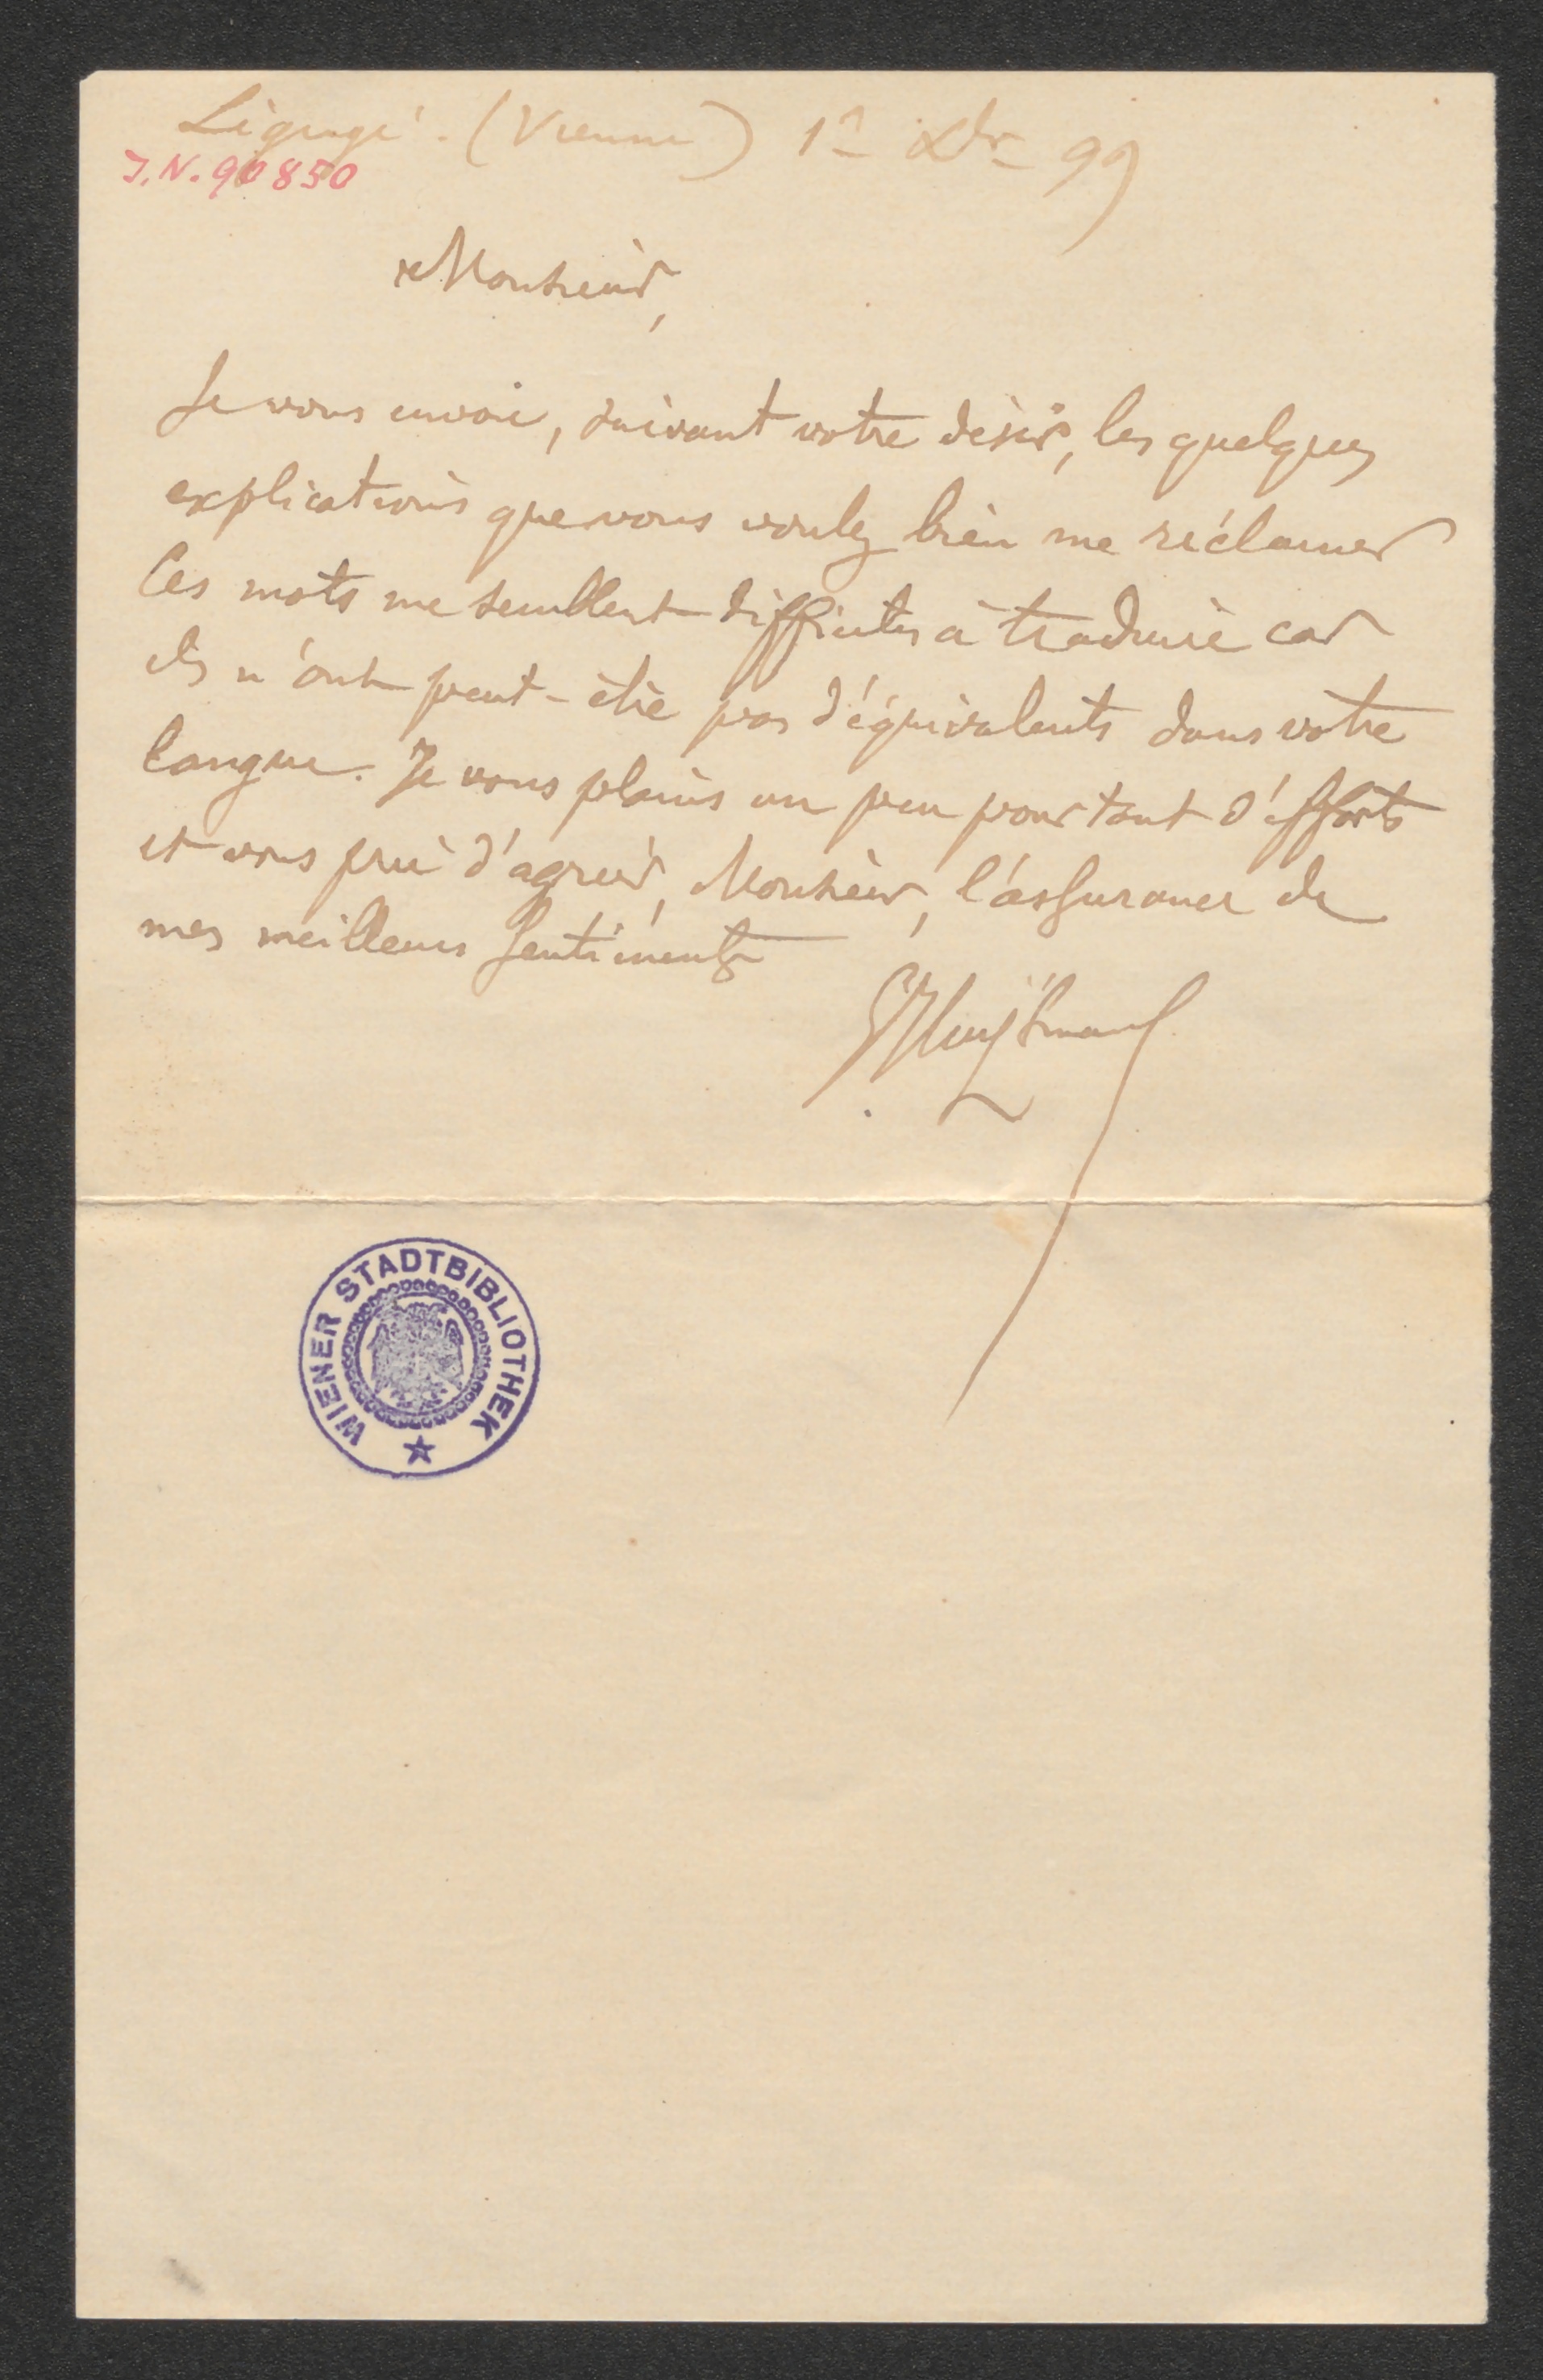 Ligugé. (Vienne) 1er Xbre 99
J.N. 90850
Monsieur,
Je vous envoie, suivant votre désir, les quelques
explications que vous voulez bien me réclamer
Ces mots me semblent difficiles à traduire car
ils n'ont peut-être pas d'équivalents dans votre
langue. Je vous plains un peu pour tant d'efforts
et vous prie d'agréer, Monsieur, l'assurance de
mes meilleurs sentiments
GHuysmans
WIENER STADTBIBLIOTHEK